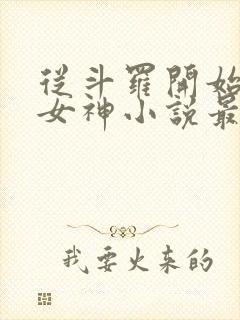 從斗羅開始
女神小說最
我要火来的